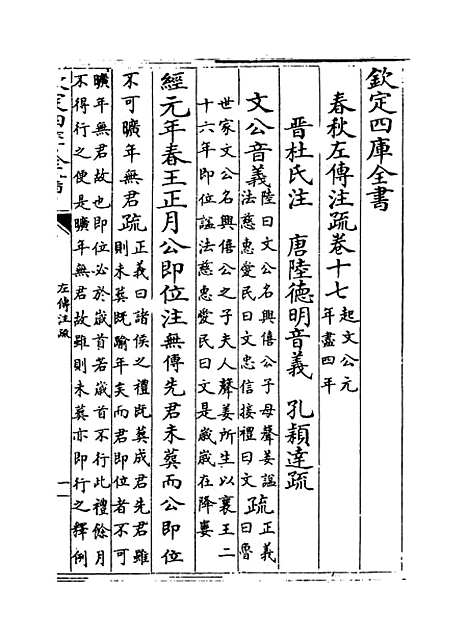 欽定四庫全書
春秋左傳注疏卷十七
起文公元
年盡四年
晉杜氏注 唐陸德明音義 孔穎達疏
文公音義
陸曰文公名興僖公子母聲姜諡
法慈惠愛民曰文忠信接禮曰文
疏
正義
曰魯
世家文公名興僖公之子夫人聲姜所生以襄王二
十六年即位諡法慈惠愛民曰文是歲歲在降婁
經元年春王正月公即位注無傳先君未葬而公即位
不可曠年無君
疏
正義曰諸侯之禮既葬成君先君雖
則未葬既踰年矣而君即位者不可
曠年無君故也即位必於歲首若歲首不行此禮餘月
不得行之便是曠年無君故雖則未葬亦即行之釋例
左傳注疏
一